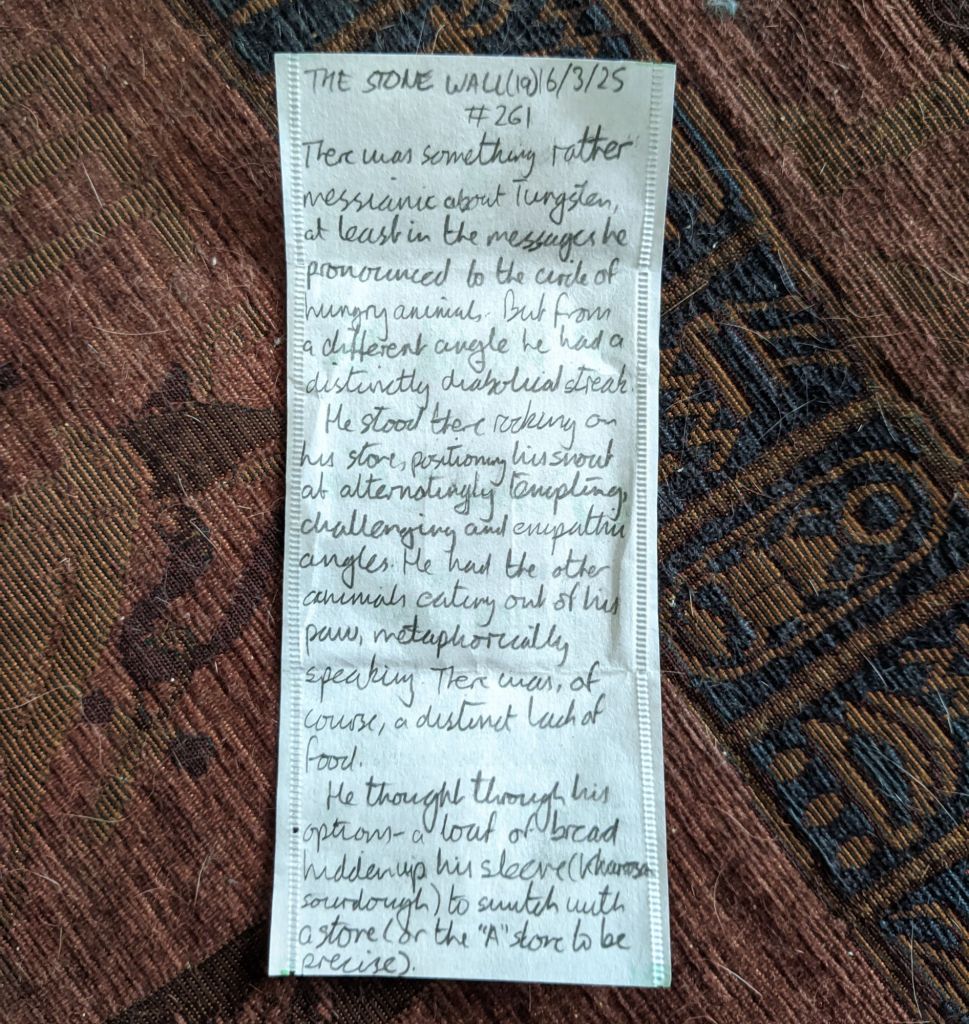 THE STONE WALL (19) 16/3/25
#261
There was something rather
messianic about Tungsten,
at least in the messages he
pronounced to the circle of
hungry animals. But from
a different angle he had a
distinctly diabolical streak.
He stood there rocking on
his stone, positioning his snout
at alternatingly tempting,
challenging and empathic
angles. He had the other
animals eating out of his
paw, metaphorically
speaking. There was, of
course, a distinct lack of
food.
He thought through his
options - a loaf of bread
hidden up his sleeve (
sourdough) to switch with
a stone (or the "A" stone to be
precise).